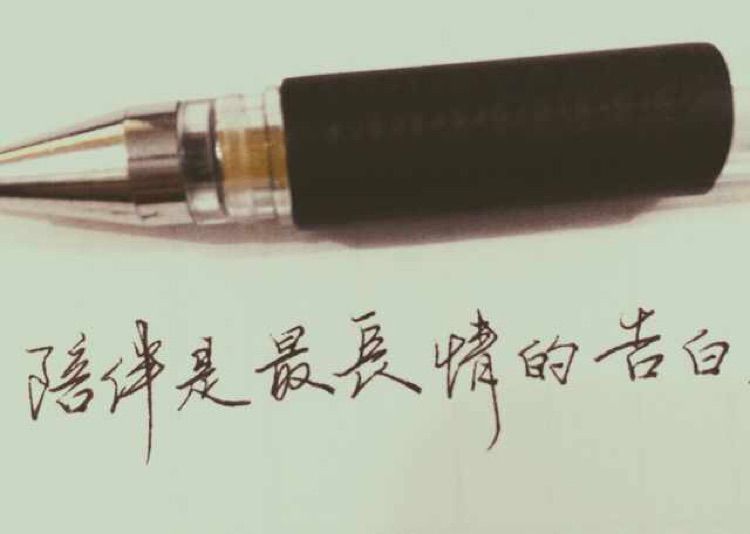 陪伴是最長情的告白.